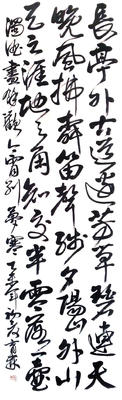 長亭外古道邊芳草碧連天
晚風拂柳笛聲殘夕陽山外山
天之涯地之角知交半零落一壺
濁酒盡餘歡今宵別夢寒